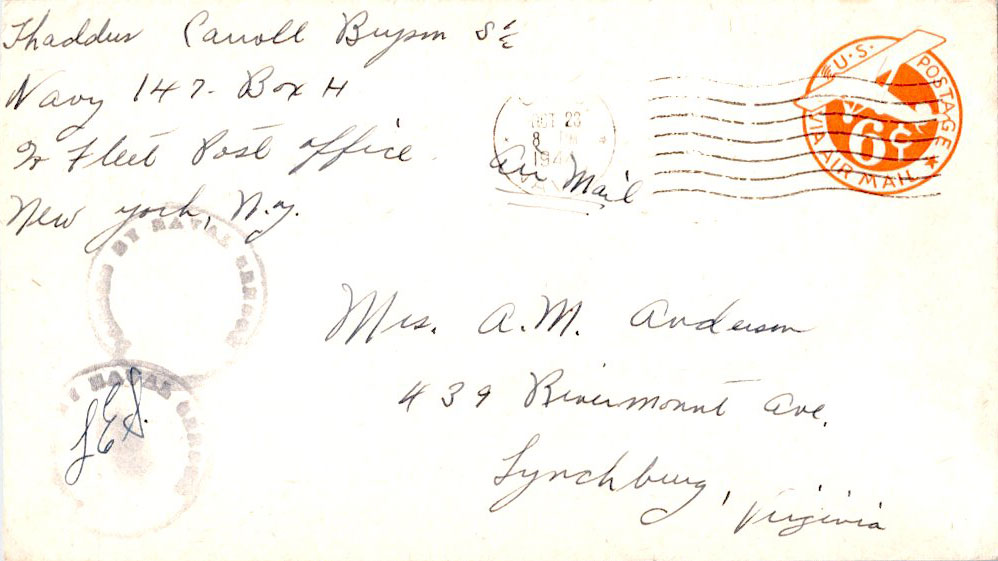 Thaddus Carroll Bryson S 1/c
Navy 147. Box H
℅ Fleet Post Office
New York, N.Y.
OCT 23
8 PM
194
Air Mail
U.S. POSTAGE
6¢
VIA AIR MAIL
BY NAVAL CENSOR
BY NAVAL CENSOR
Mrs. A.M. Anderson
439 Rivermount Ave.
Lynchburg, Virginia